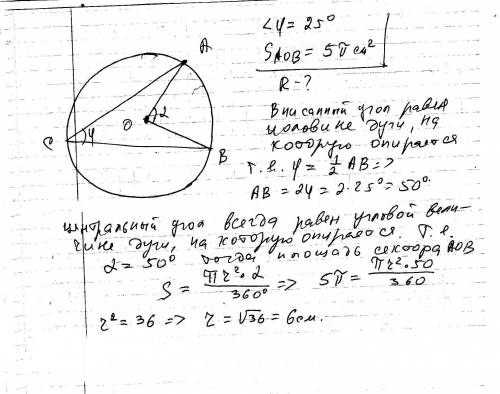 ∠φ = 25°
S AOB = 5π см²
R - ?
A
O
α
C
φ
B
Вписанный угол равен
половине дуги, на
которую опирается
т.е. φ = 1/2 AB =>
AB = 2φ = 2·25° = 50°
Центральный угол всегда равен угловой вели-
чине дуги, на которую опирается. Т.е.
α = 50° тогда площадь сектора AOB
S = πr²·α/360° => 5π = πr²·50/360
r² = 36 => r = √36 = 6 см.